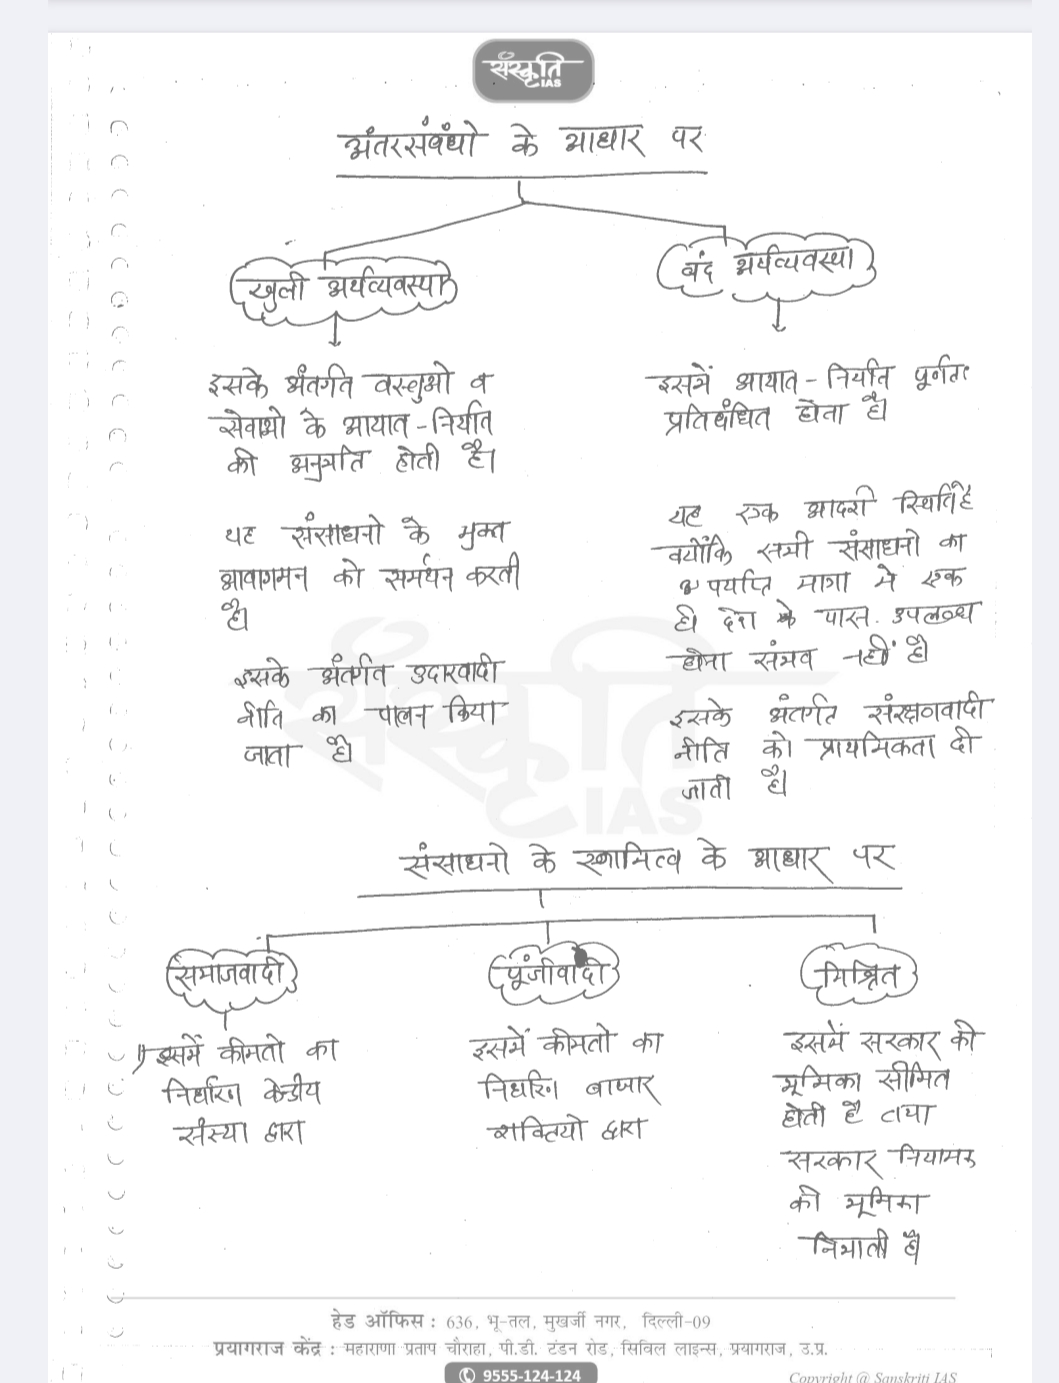 संस्कृति
IAS
अंतरसंबंधो के आधार पर
खुली अर्थव्यवस्था
बंद अर्थव्यवस्था
इसके अंतर्गत वस्तुओ व
सेवाओ के आयात-निर्यात
की अनुमति होती है।
यह संसाधनो के मुक्त
आवागमन को समर्थन करती
है।
इसके अंतर्गत उदारवादी
नीति का पालन किया
जाता है।
इसमें आयात-निर्यात पूर्णतः
प्रतिबंधित होता है।
यह एक आदर्श स्थिति है
क्योंकि सभी संसाधनो का
पर्याप्त मात्रा मे एक
ही देश के पास उपलब्ध
होना संभव नहीं है।
इसके अंतर्गत संरक्षणवादी
नीति को प्राथमिकता दी
जाती है।
संस्कृति
IAS
संसाधनो के स्वामित्व के आधार पर
समाजवादी
पूंजीवादी
मिश्रित
1) इसमें कीमतो का
निर्धारण केन्द्रीय
संस्था द्वारा
इसमें कीमतो का
निर्धारण बाजार
शक्तियो द्वारा
इसमें सरकार की
भूमिका सीमित
होती है तथा
सरकार नियामक
की भूमिका
निभाती है।
हेड ऑफिस : 636, भू-तल, मुखर्जी नगर, दिल्ली-09
प्रयागराज केंद्र : महाराणा प्रताप चौराहा, पी.डी. टंडन रोड, सिविल लाइन्स, प्रयागराज, उ.प्र.
9555-124-124
Copyright @ Sanskriti IAS